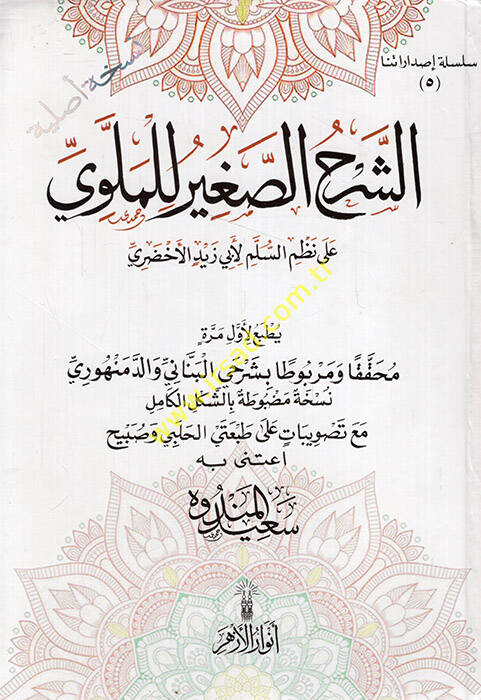 سلسلة إصداراتنا
(٥)
نسخة أصلية
الشَّرْحُ الصَّغِيرُ لِلْمَلَّوِيِّ
عَلَى نَظْمِ السُّلَّمِ لِأَبِي زَيْدٍ الأَخْضَرِيِّ
يُطْبَعُ لِأَوَّلِ مَرَّةٍ
مُحَقَّقًا وَمَرْبُوطًا بِشَرْحَيِ الْبَنَّانِيِّ وَالدَّمَنْهُورِيِّ
نُسْخَةٌ مَضْبُوطَةٌ بِالشَّكْلِ الْكَامِلِ
مَعَ تَصْوِيبَاتٍ عَلَى طَبْعَتَيِ الْحَلَبِيِّ وَصُبَيْح
اعتنى به
سَعِيد الْمَنْدُوه
أنوار الأزهر
www.irsad.com.tr